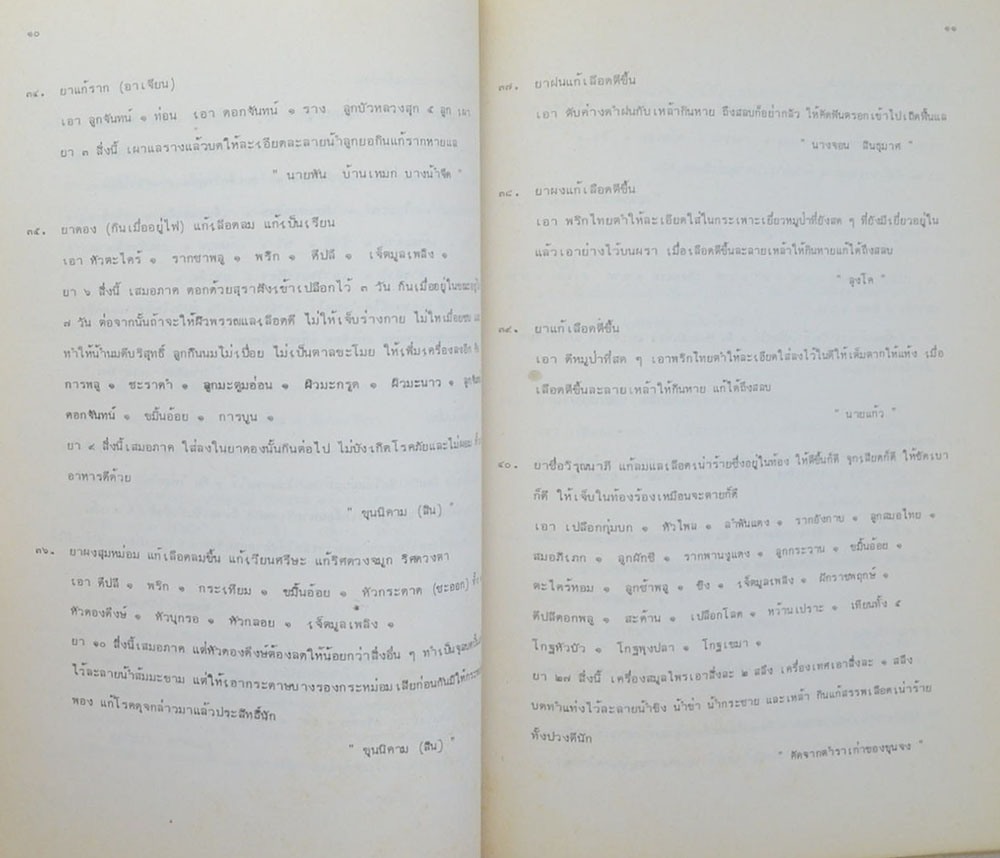 ๑๐
๓๔. ยาแก้ราก (อาเจียน)
เอา ลูกจันทน์ ๑ ท่อน เอา ดอกจันทน์ ๑ ราง ลูกบัวหลวงสุก ๕ ลูก เผา
ยา ๓ สิ่งนี้ เผาแลรางแล้วบดให้ละเอียดละลายน้ำลูกยอกินแก้รากหายแล
" นายพัน บ้านเหมก บางน้ำจืด "
๓๕. ยาดอง (กินเมื่ออยู่ไฟ) แก้เลือดลม แก้เป็นเรียน
เอา หัวตะไคร้ ๑ รากชาพลู ๑ พริก ๑ ดีปลี ๑ เจ็ตมูลเพลิง ๑
ยา ๖ สิ่งนี้ เสมอภาค ดอกด้วยสุราฝังเข้าเปลือกไว้ ๓ วัน กินเมื่ออยู่ในขณะอยู่
๗ วัน ต่อจากนั้นถ้าจะให้ผิวพรรณและเลือดดี ไม่ให้เจ็บร่างกาย ไม่ให้เมื่อยขบ
ทำให้น้ำนมดิบริสุทธิ์ ลูกกินนมไม่เปื่อย ไม่เป็นตาลขะโมย ให้เพิ่มเครื่องลงอีก
การพลู ๑ ชะราดำ ๑ ลูกมะตูมอ่อน ๑ ผิวมะกรูด ๑ ผิวมะนาว ๑
ดอกจันทน์ ๑ ขมิ้นอ้อย ๑ การบูน ๑
ยา ๔ สิ่งนี้เสมอภาค ใส่ลงในยาดองนั้นกินต่อไป ไม่บังเกิดโรคภัยและไม่
อาหารดีด้วย
" ขุนนิคาม (สิน) "
๓๖. ยาผงสุมหม่อม แก้เลือดลมขึ้น แก้เวียนศรีษะ แก้ริศดวงจมูก ริศดวงตา
เอา ดีปลี ๑ พริก ๑ กระเทียม ๑ ขมิ้นอ้อย ๑ หัวกระดาด (ชะออก)
หัวดองดึงษ์ ๑ หัวบุกรอ ๑ หัวกลอย ๑ เจ็ตมูลเพลิง ๑
ยา ๑๐ สิ่งนี้เสมอภาค แต่หัวดองดึงษ์ต้องลดให้น้อยกว่าสิ่งอื่น ๆ ทำเป็นจุลบด
ไว้ละลายน้ำส้มมะขาม แต่ให้เอากระดาษบางรองกระหม่อมเสียก่อนกันมิให้
พอง แก้โรคดุจกล่าวมาแล้วประสิทธิ์นัก
" ขุนนิคาม (สิน) "
๑๑
๓๗. ยาฝนแก้เลือดตีขึ้น
เอา ดับค่างดำฝนกับเหล้ากินหาย ถึงสลบก็อย่ากลัว ให้งัดฟันกรอกเข้าไปเถิดฟื้นแล
" นางจอน สินธุมาศ "
๓๘. ยาผงแก้เลือดตีขึ้น
เอา พริกไทยดำให้ละเอียดใส่ในกระเพาะเยี่ยวหมูป่าที่ยังสด ๆ ที่ยังมีเยี่ยวอยู่ใน
แล้วเอาย่างไว้บนผรา เมื่อเลือดตีขึ้นละลายเหล้าให้กินหายแก้ได้ถึงสลบ
" ลุงโต "
๓๙. ยาแก้เลือดตีขึ้น
เอา ดีหมูป่าที่สด ๆ เอาพริกไทยดำให้ละเอียดใส่ลงไว้ในดีให้เต็มตากให้แห้ง เมื่อ
เลือดตีขึ้นละลายเหล้าให้กินหาย แก้ได้ถึงสลบ
" นายแก้ว "
๔๐. ยาชื่อวิรุณนาภี แก้ลมและเลือดเน่าร้ายซึ่งอยู่ในท้อง ให้ตีขึ้นก็ดี จุกเสียดก็ดี ให้ขัดเบา
ก็ดี ให้เจ็บในท้องร้องเหมือนจะตายก็ดี
เอา เปลือกกุ่มบก ๑ หัวไพล ๑ ลำพันแดง ๑ รากอังกาบ ๑ ลูกสมอไทย ๑
สมอภิเภก ๑ ลูกผักชี ๑ รากพานงูแดง ๑ ลูกกระวาน ๑ ขมิ้นอ้อย ๑
ตะไคร้หอม ๑ ลูกช้าพลู ๑ ขิง ๑ เจ็ตมูลเพลิง ๑ ผักราชพฤกษ์ ๑
ดีปลีดอกพลู ๑ สะค้าน ๑ เปลือกโลด ๑ หว้านเปราะ ๑ เทียนทั้ง ๕
โกฐหัวบัว ๑ โกฐพุงปลา ๑ โกฐเขมา ๑
ยา ๒๗ สิ่งนี้ เครื่องสมุลไพรเอาสิ่งละ ๒ สลึง เครื่องเทศเอาสิ่งละ ๑ สลึง
บดทำแท่งไว้ละลายน้ำขิง น้ำข่า น้ำกระชาย และเหล้า กินแก้สรรพเลือดเน่าร้าย
ทั้งปวงดีนัก
" คัดจากตำราเก่าของขุนจง "